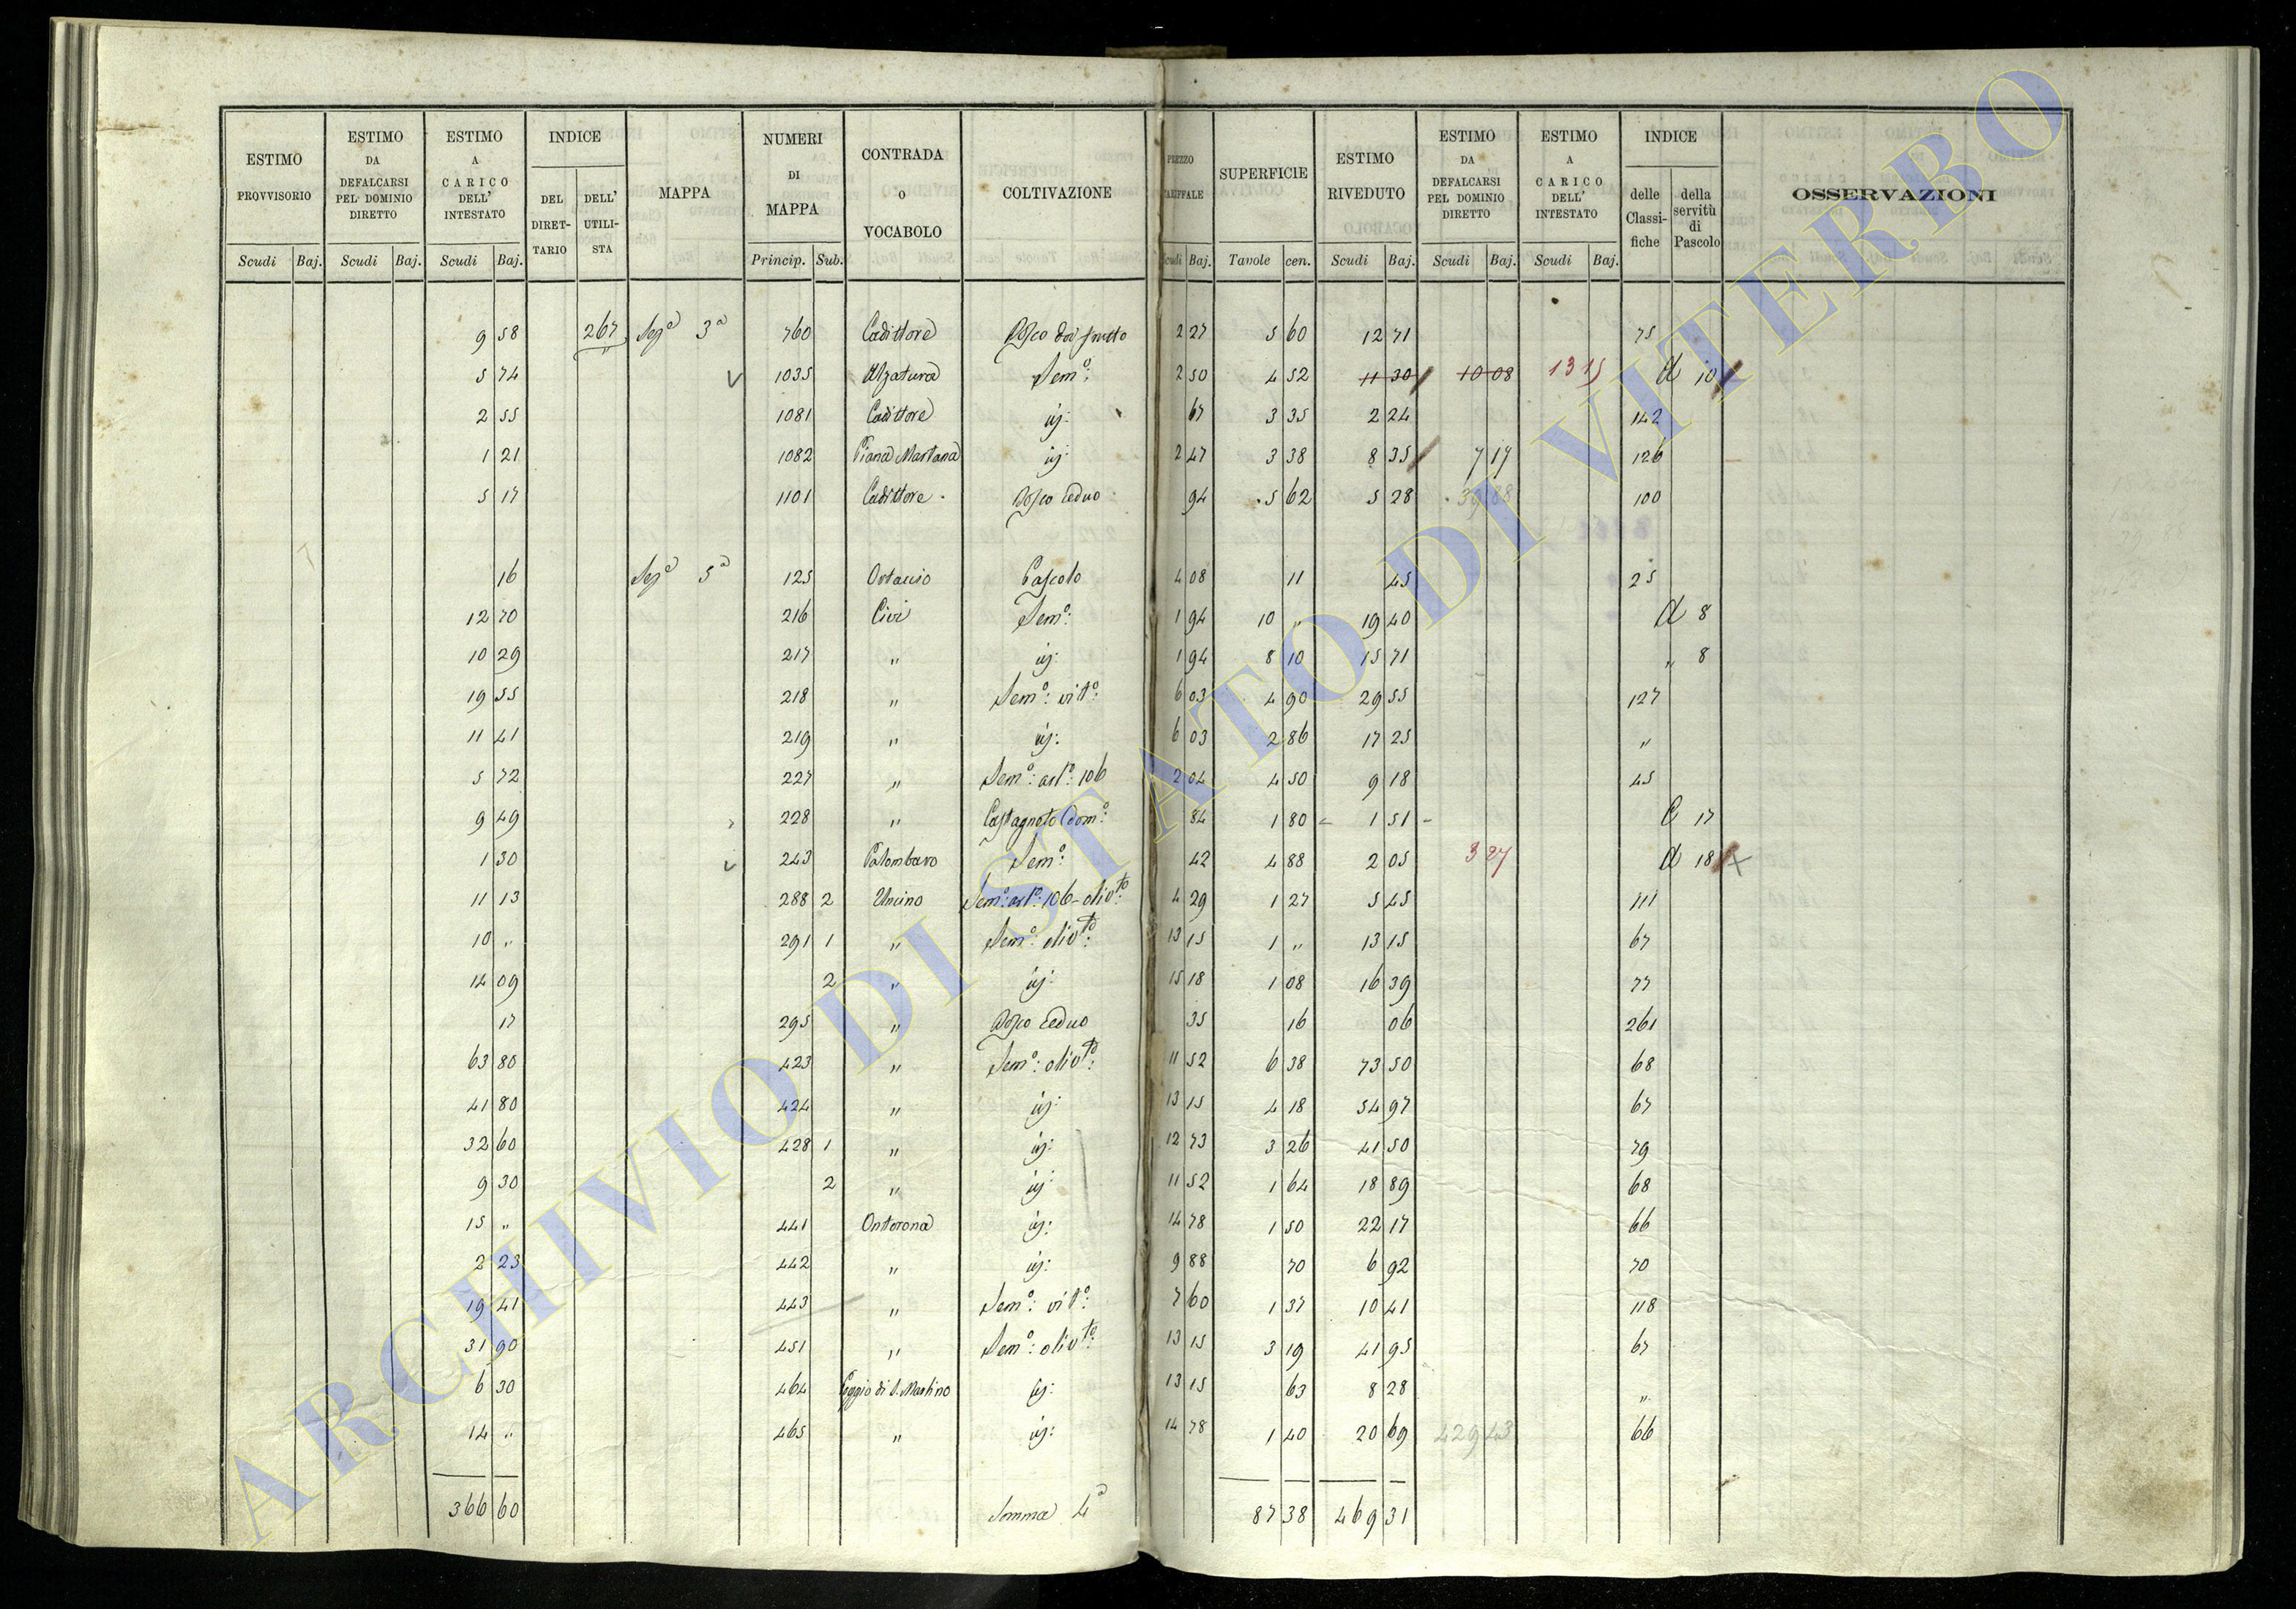 ESTIMO PROVVISORIO | ESTIMO DA DEFALCARSI PEL DOMINIO DIRETTO | ESTIMO A CARICO DELL' INTESTATO | INDICE | MAPPA | NUMERI DI MAPPA | CONTRADA O VOCABOLO | COLTIVAZIONE | PREZZO TARIFFALE | SUPERFICIE | ESTIMO RIVEDUTO | ESTIMO DA DEFALCARSI PEL DOMINIO DIRETTO | ESTIMO A CARICO DELL' INTESTATO | INDICE | OSSERVAZIONI
DEL DIRETTARIO | DELL' UTILISTA | delle Classifiche | della servitù di Pascolo
Scudi Baj. | Scudi Baj. | Scudi Baj. | Princip. Sub. | Scudi Baj. | Tavole cen. | Scudi Baj. | Scudi Baj. | Scudi Baj.
9 58 267 Sezª 3ª 760 Cadittore Bosco da frutto 2 27 5 60 12 71 75
5 74 1035 Alzatura Semº: 2 50 4 52 11 30 10 08 13 15 A 10
2 55 1081 Cadittore id: 67 3 35 2 24 142
1 21 1082 Piana Martana id: 2 47 3 38 8 35 7 17 126
5 17 1101 Cadittore Bosco ceduo 94 5 62 5 28 39 88 100
16 Sezª 5ª 125 Ortaccio Pascolo 4 08 11 45 25
12 70 216 Civi Semº: 1 94 10 " 19 40 A 8
10 29 217 " id: 1 94 8 10 15 71 " 8
19 55 218 " Semº: vitº: 6 03 4 90 29 55 127
11 41 219 " id: 6 03 2 86 17 25 "
5 72 227 " Semº: astº: 106 2 04 4 50 9 18 45
9 49 228 " Castagneto domº: 84 1 80 1 51 C 17
1 30 243 Palombaro Semº: 42 4 88 2 05 3 27 A 18
11 13 288 2 Uncino Semº: astº: 106 olivto: 4 29 1 27 5 45 111
10 " 291 1 " Semº: olivto: 13 15 1 " 13 15 67
14 09 2 " id: 15 18 1 08 16 39 77
17 295 " Bosco ceduo 35 16 06 261
63 80 423 " Semº: olivto: 11 52 6 38 73 50 68
41 80 424 " id: 13 15 4 18 54 97 67
32 60 428 1 " id: 12 73 3 26 41 50 79
9 30 2 " id: 11 52 1 64 18 89 68
15 " 441 Ontorona id: 14 78 1 50 22 17 66
2 23 442 " id: 9 88 70 6 92 70
19 41 443 " Semº: vitº: 7 60 1 37 10 41 118
31 90 451 " Semº: olivto: 13 15 3 19 41 95 67
6 30 464 Poggio di S. Martino id: 13 15 63 8 28 "
14 " 465 " id: 14 78 1 40 20 69 429 43 66
366 60 Somma 4ª 87 38 469 31
ARCHIVIO DI STATO DI VITERBO